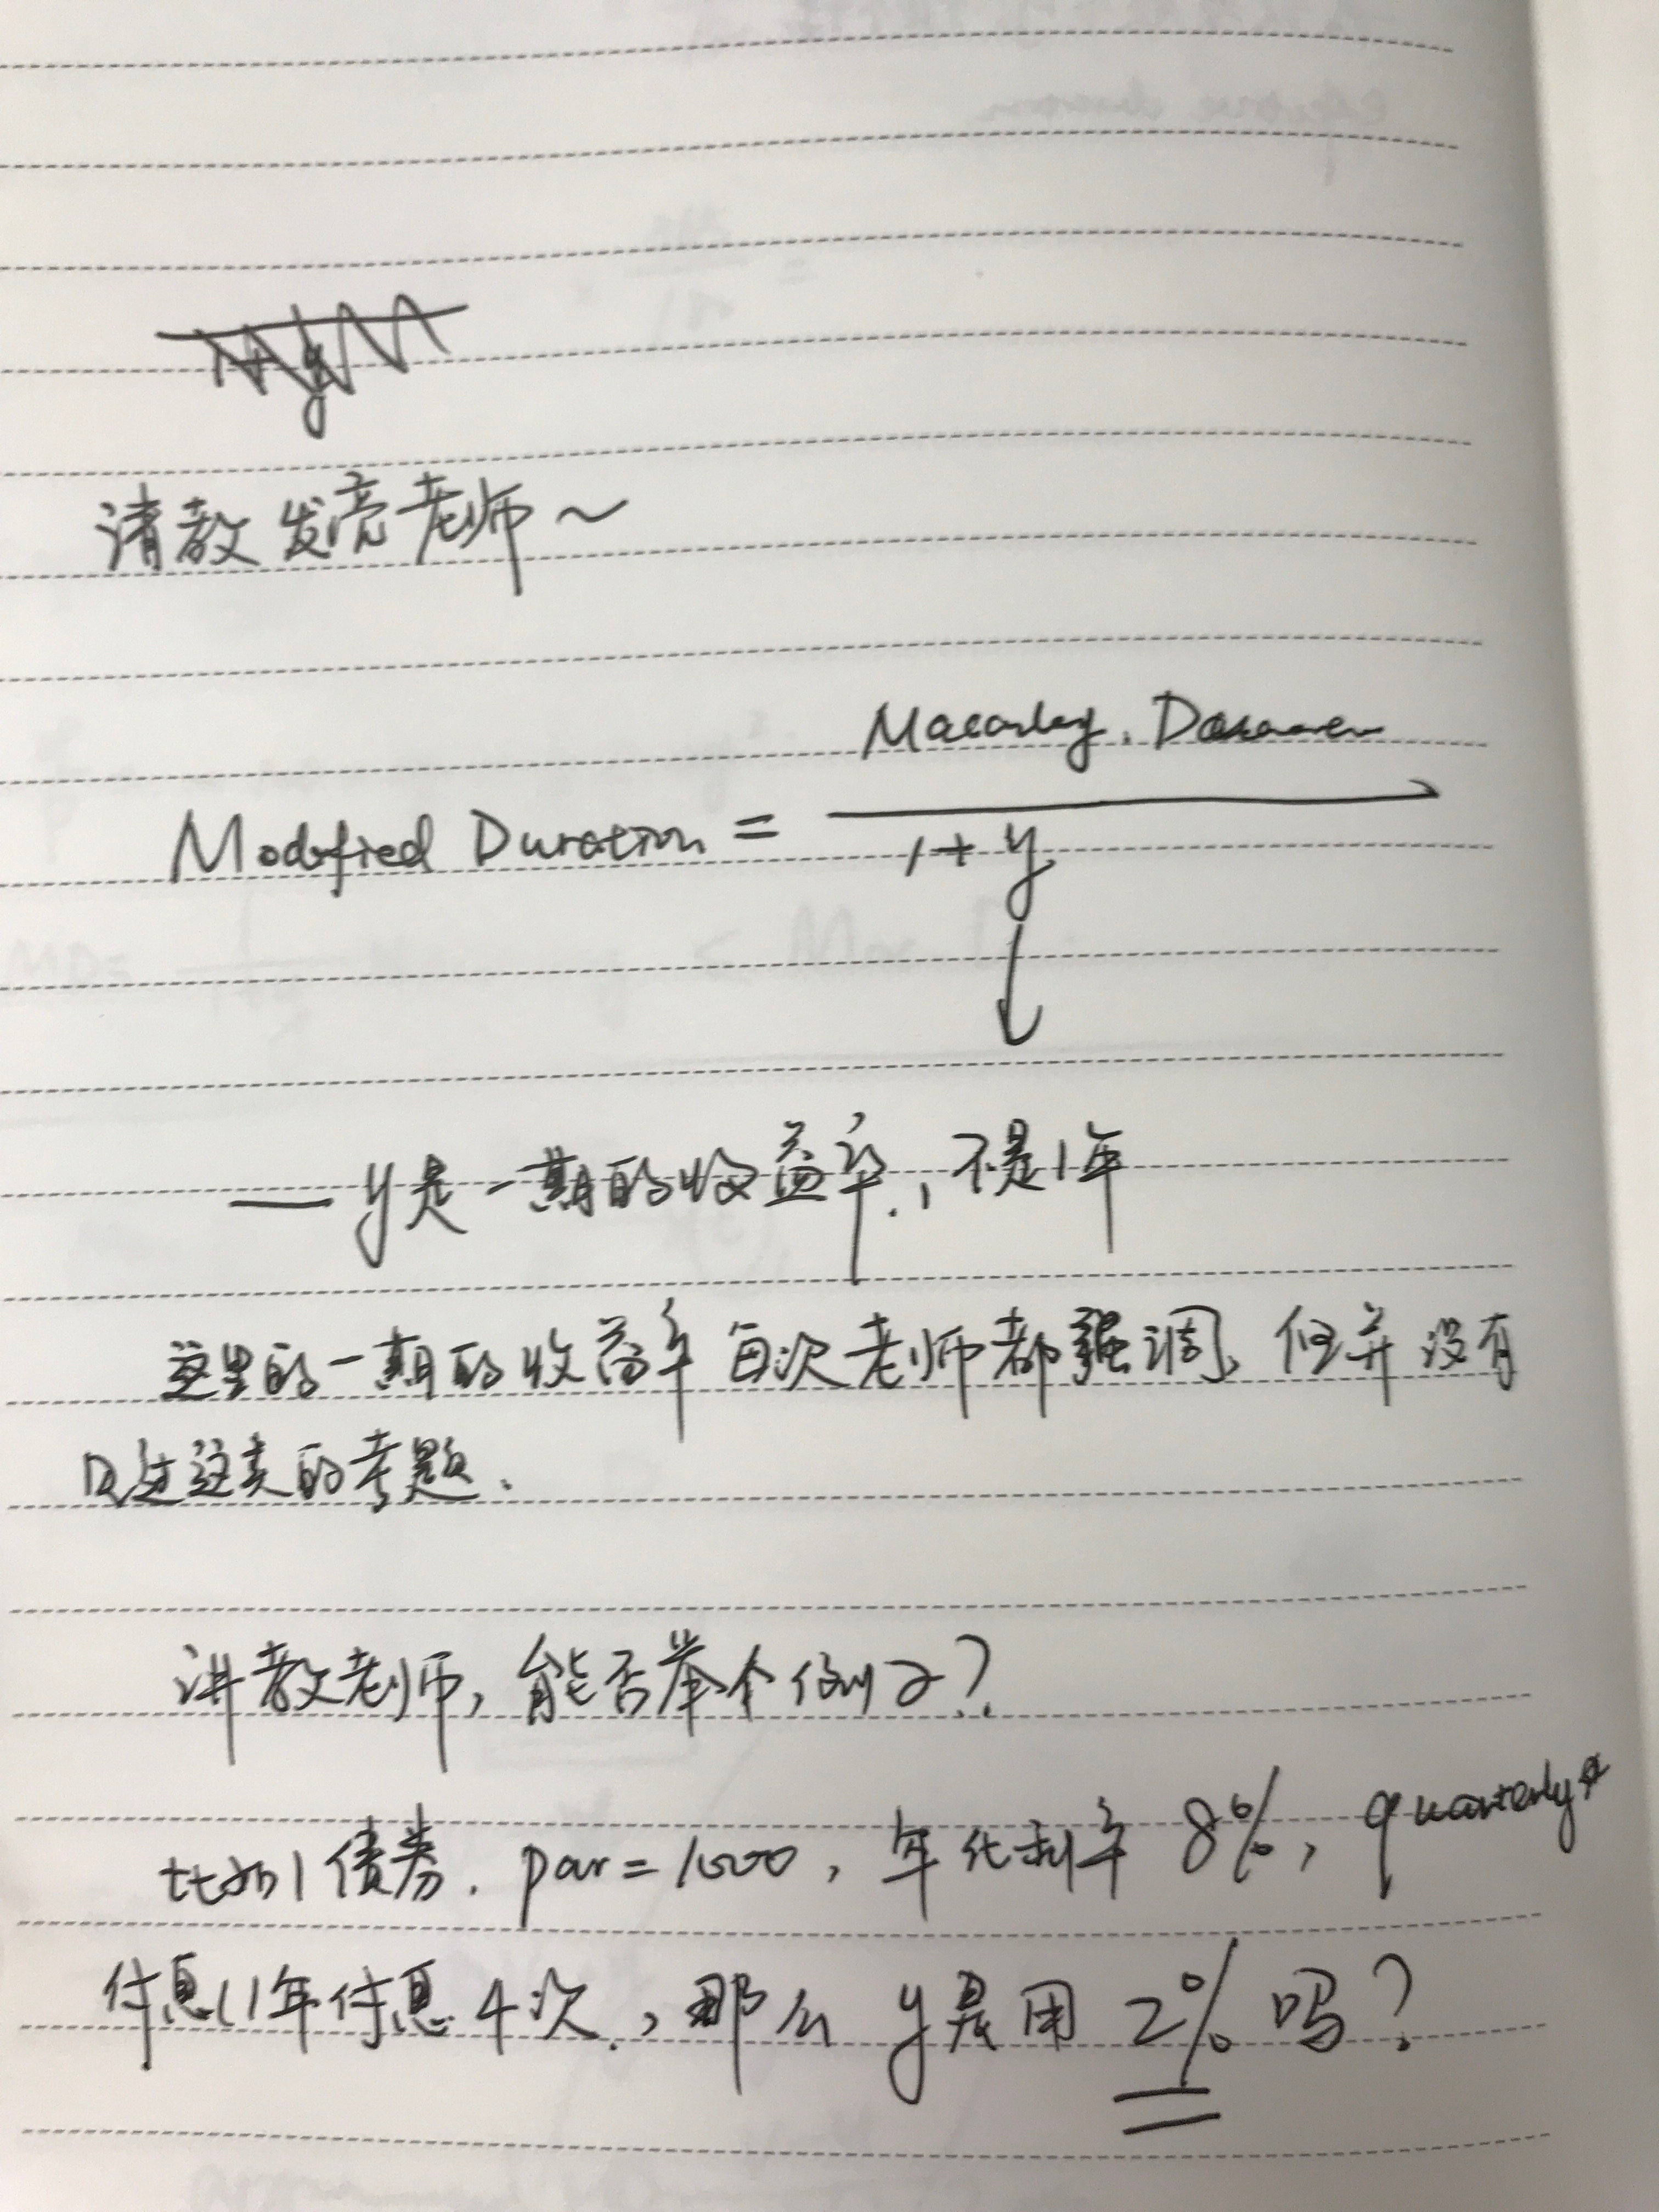 请教发亮老师～
Macaulay. Duration
Modified Duration = 
1+y
— y是一期的收益率, 不是1年
这里的一期的收益率每次老师都强调, 但并没有
过这类的考题.
讲教老师, 能否举个例子?
比如1债券. par=1000, 年化利率 8%, quarterly
付息(1年付息4次, 那么 y是用 2% 吗?